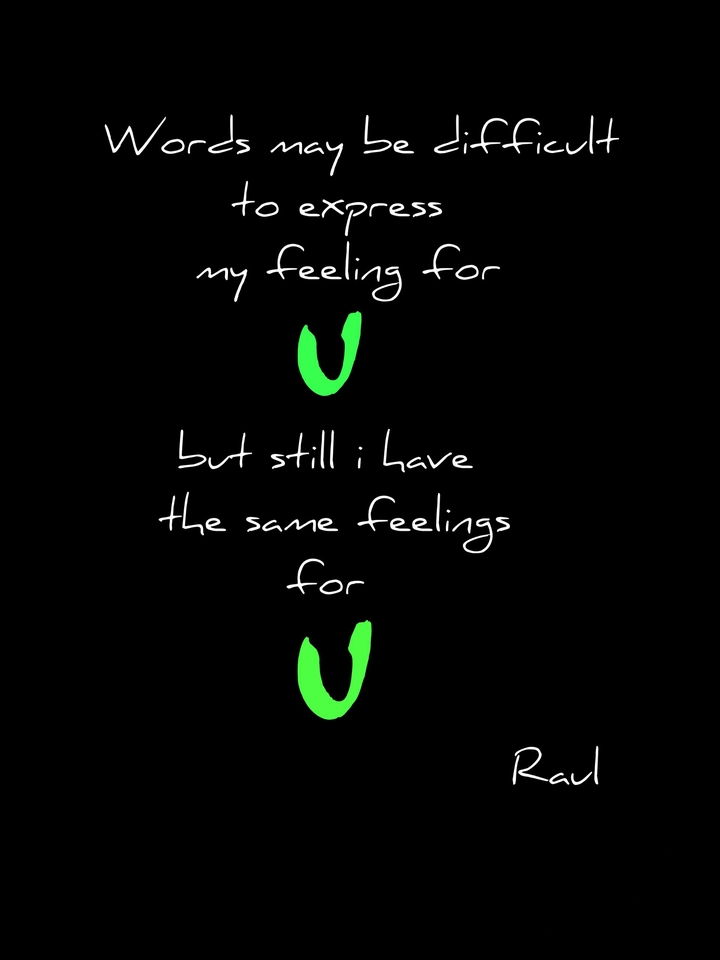 Words may be difficult
to express
my feeling for
U
but still i have
the same feelings
for
U
Raul